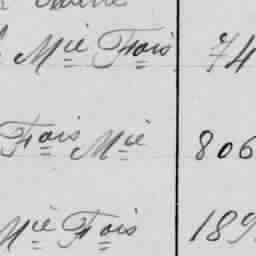 Mie Fois 74
Fois Mie 806
Mie Fois 189